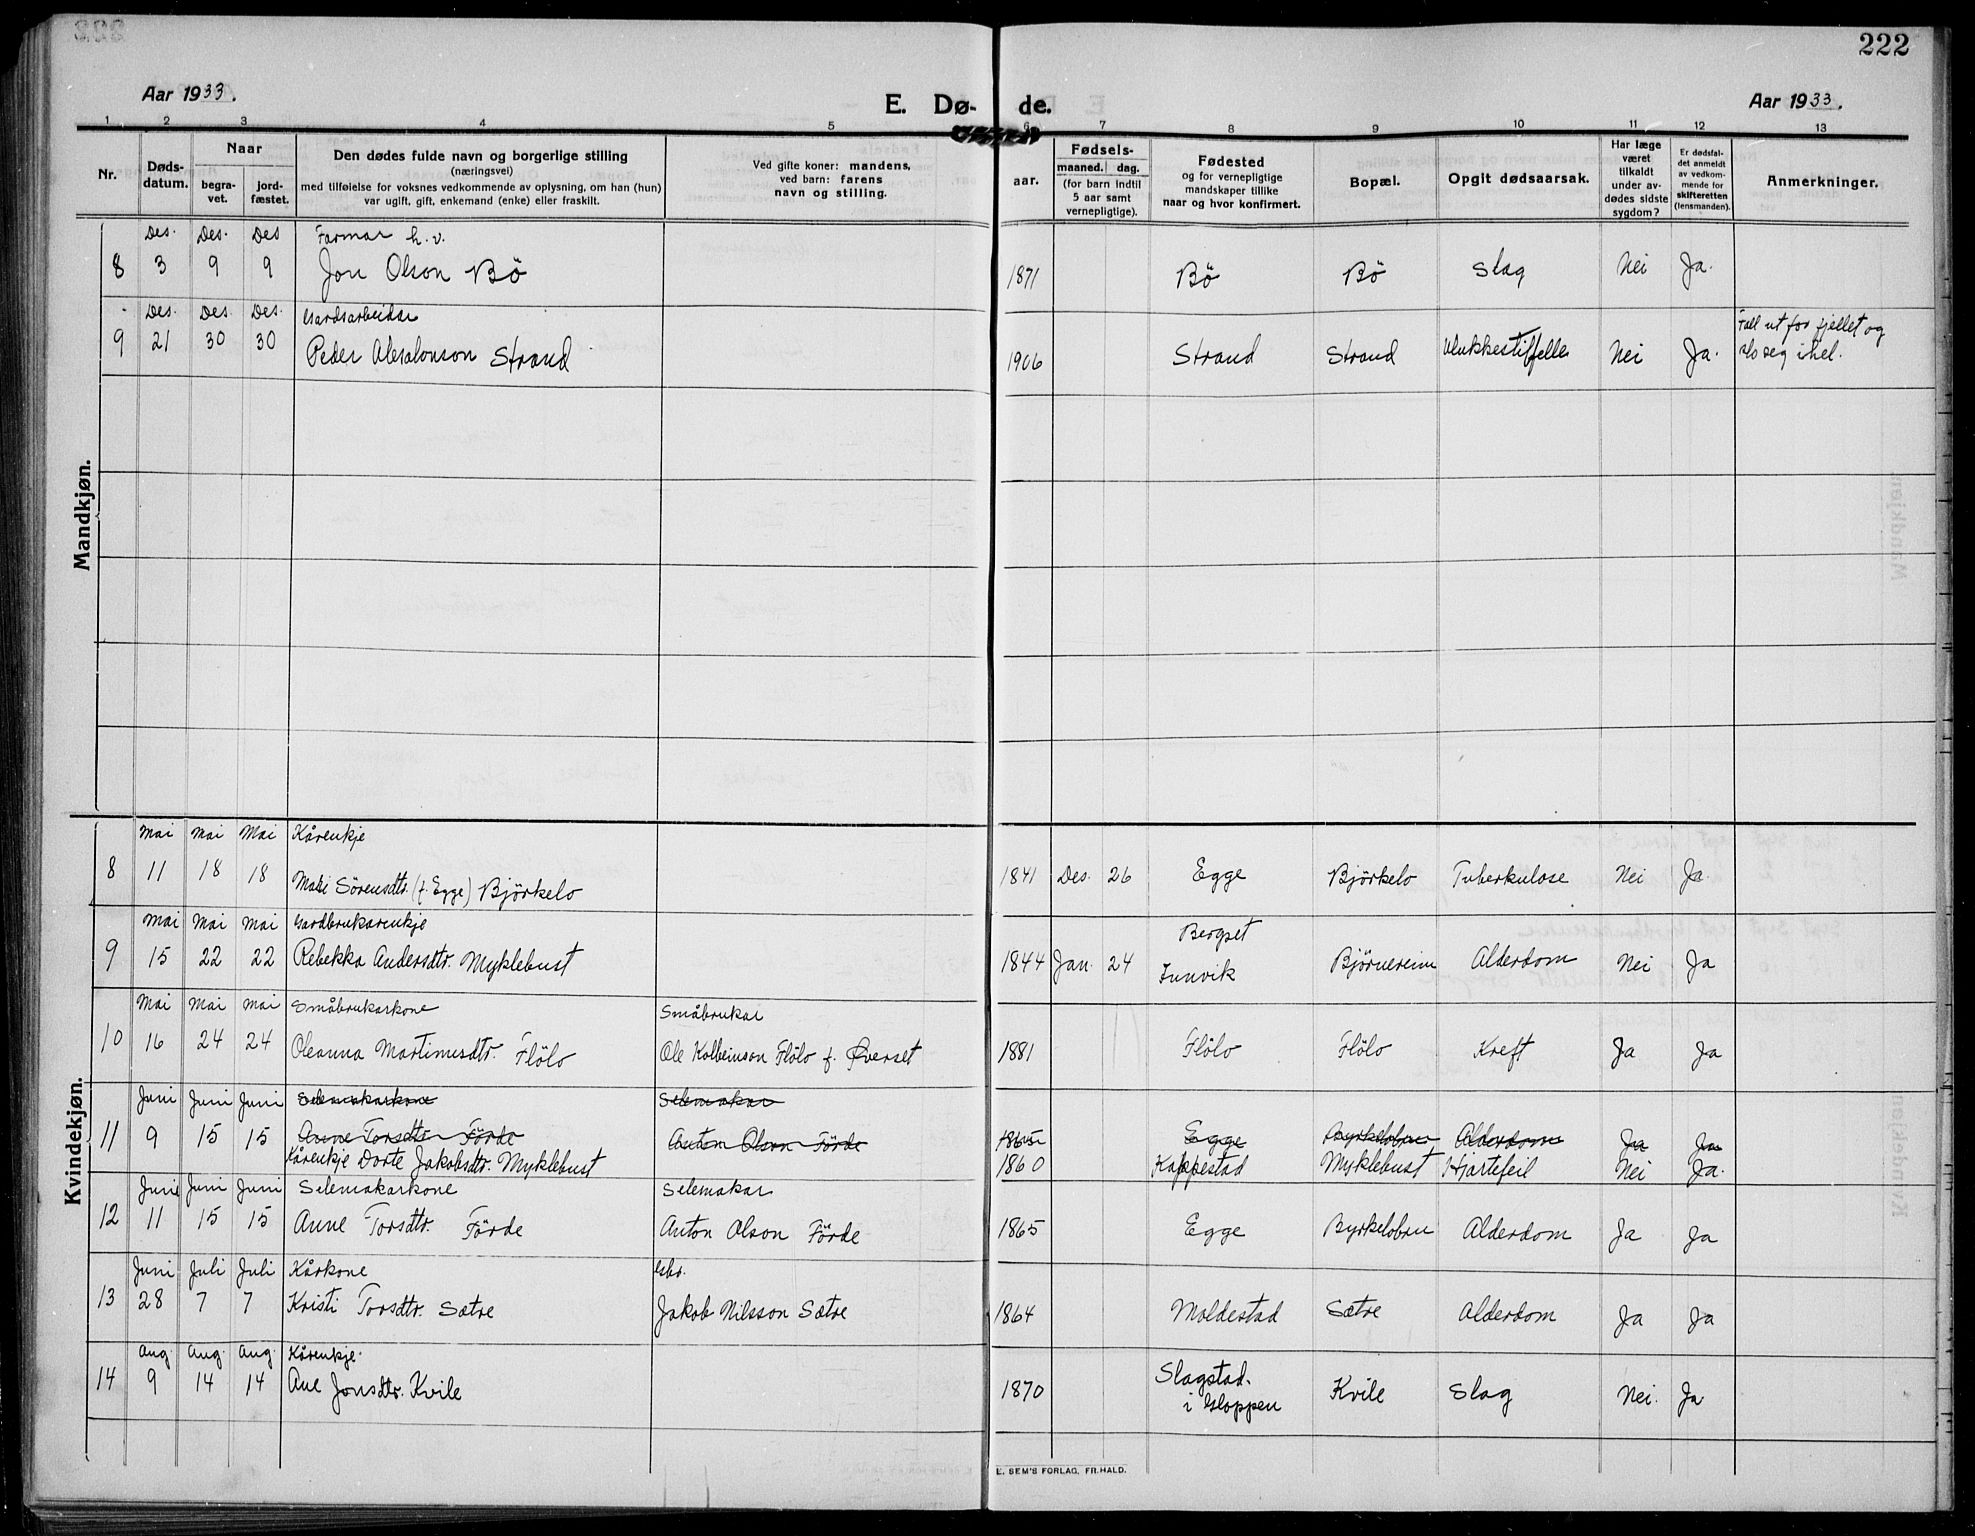 222
Aar 1933.
E. Dø- de.
Aar 1933.
1 2 3 4 5 6 7 8 9 10 11 12 13
Nr.
Døds-
datum.
Naar
begra-
vet.
jord-
fæstet.
Den dødes fulde navn og borgerlige stilling
(næringsvei)
med tilføielse for voksnes vedkommende av oplysning, om han (hun)
var ugift, gift, enkemand (enke) eller fraskilt.
Ved gifte koner: mandens,
ved barn: farens
navn og stilling.
aar.
Fødsels-
maaned. dag.
(for barn indtil
5 aar samt
vernepligtige).
Fødested
og for vernepligtige
mandskaper tillike
naar og hvor konfirmert.
Bopæl.
Opgit dødsaarsak.
Har læge
været
tilkaldt
under av-
dødes sidste
sygdom?
Er dødsfal-
det anmeldt
av vedkom-
mende for
skifteretten
(lensmanden).
Anmerkninger.
Mandkjøn.
Des. Des. Des Farmar h. v.
8 3 9 9 Jon Olson Bö 1871 Bö Bö Slag Nei Ja.
Des. Des. Des. Gardsarbeidar
9 21 30 30 Peder Absalonson Strand 1906 Strand Strand Ulukkestilfelle Nei Ja.
Fall ut for fjellet og
slo seg ihel.
Kvindekjøn.
Mai Mai Mai Kårenkje
8 11 18 18 Mari Sörensdtr. (f. Egge) Björkelo 1841 Des. 26 Egge Björkelo Tuberkulose Nei Ja.
Mai Mai Mai Gardbrukarenkje
9 15 22 22 Rebekka Andersdtr. Myklebust 1844 Jan. 24 Bergset
Innvik Björnereim Alderdom Nei Ja
Mai Mai Mai Småbrukarkone Småbrukar
10 16 24 24 Oleanna Martinusdtr. Flölo Ole Kolbeinson Flölo f. Øverset 1881 Flölo Flölo Kreft Ja Ja
Juni Juni Juni Selemakarkone Selemakar
11 9 15 15 Anne Torsdtr Förde Anton Olson Förde 1865 Egge Byrkelobru Alderdom Ja Ja
Kårenkje Dorte Jakobsdtr. Myklebust 1860 Kappestad Myklebust Hjartefeil Nei Ja.
Juni Juni Juni Selemakarkone Selemakar
12 11 15 15 Anne Torsdtr. Förde Anton Olson Förde 1865 Egge Byrkelobru Alderdom Ja Ja
Juni Juli Juli Kårkone Gbr.
13 28 7 7 Kristi Torsdtr. Sætre Jakob Nilsson Sætre 1864 Moldestad Sætre Alderdom Ja Ja
Aug. Aug. Aug. Kårenkje.
14 9 14 14 Ane Jonsdtr. Kvile 1870 Slagstad.
i Gloppen Kvile Slag Nei. Ja
E. SEM'S FORLAG, FR.HALD.